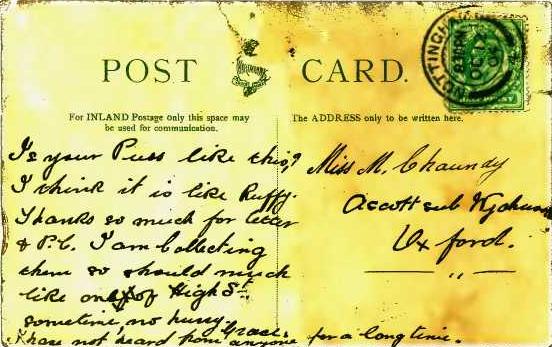 POST CARD.
For INLAND Postage only this space may
be used for communication.
The ADDRESS only to be written here.
NOTTINGHAM
OC 17
04
Is your Puss like this?
I think it is like Ruffy.
Thanks so much for letter
& P.C. I am collecting
them so should much
like one of High St.
sometime, no hurry
Grace.
I have not heard from anyone for a long time.
Miss M. Chaundy
Ascott sub Wychwood
Oxford.